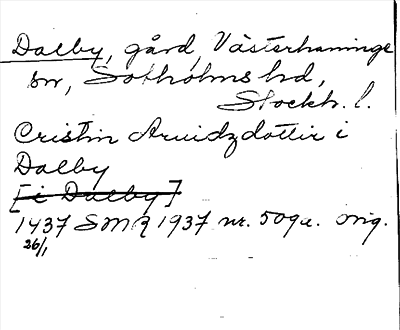 Dalby, gård, Västerhaninge
sn, Sotholms hd,
Stockh. l.
Cristin Aruidzdotter i
Dalby
[i Dalby]
1437 SMR 1937 nr. 509a. orig.
26/1